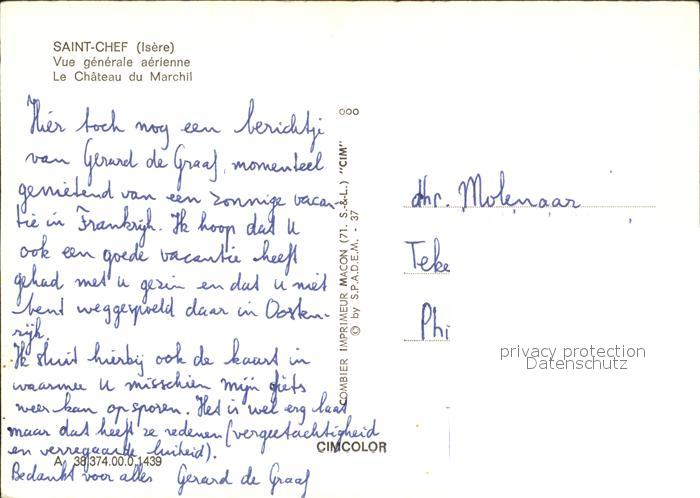 SAINT-CHEF (Isère)
Vue générale aérienne
Le Château du Marchil
Hier toch nog een berichtje
van Gerard de Graaf, momenteel
genietend van een zonnige vacan-
tie in Frankrijk. Ik hoop dat u
ook een goede vacantie heeft
gehad met u gezin en dat u niet
bent weggespoeld daar in Oosten-
rijk.
Ik sluit hierbij ook de kaart in
waarmee u misschien mijn fiets
weer kan opsporen. Het is wel erg laat
maar dat heeft ze redenen (vergeetachtigheid
en verregaande luiheid).
Bedankt voor alles Gerard de Graaf
A. 38.374.00.0.1439
CIMCOLOR
COMBIER IMPRIMEUR MACON (71. S.-&-L.) "CIM"
© by S.P.A.D.E.M. - 37
dhr. Molenaar
Teke
Phi
privacy protection
Datenschutz